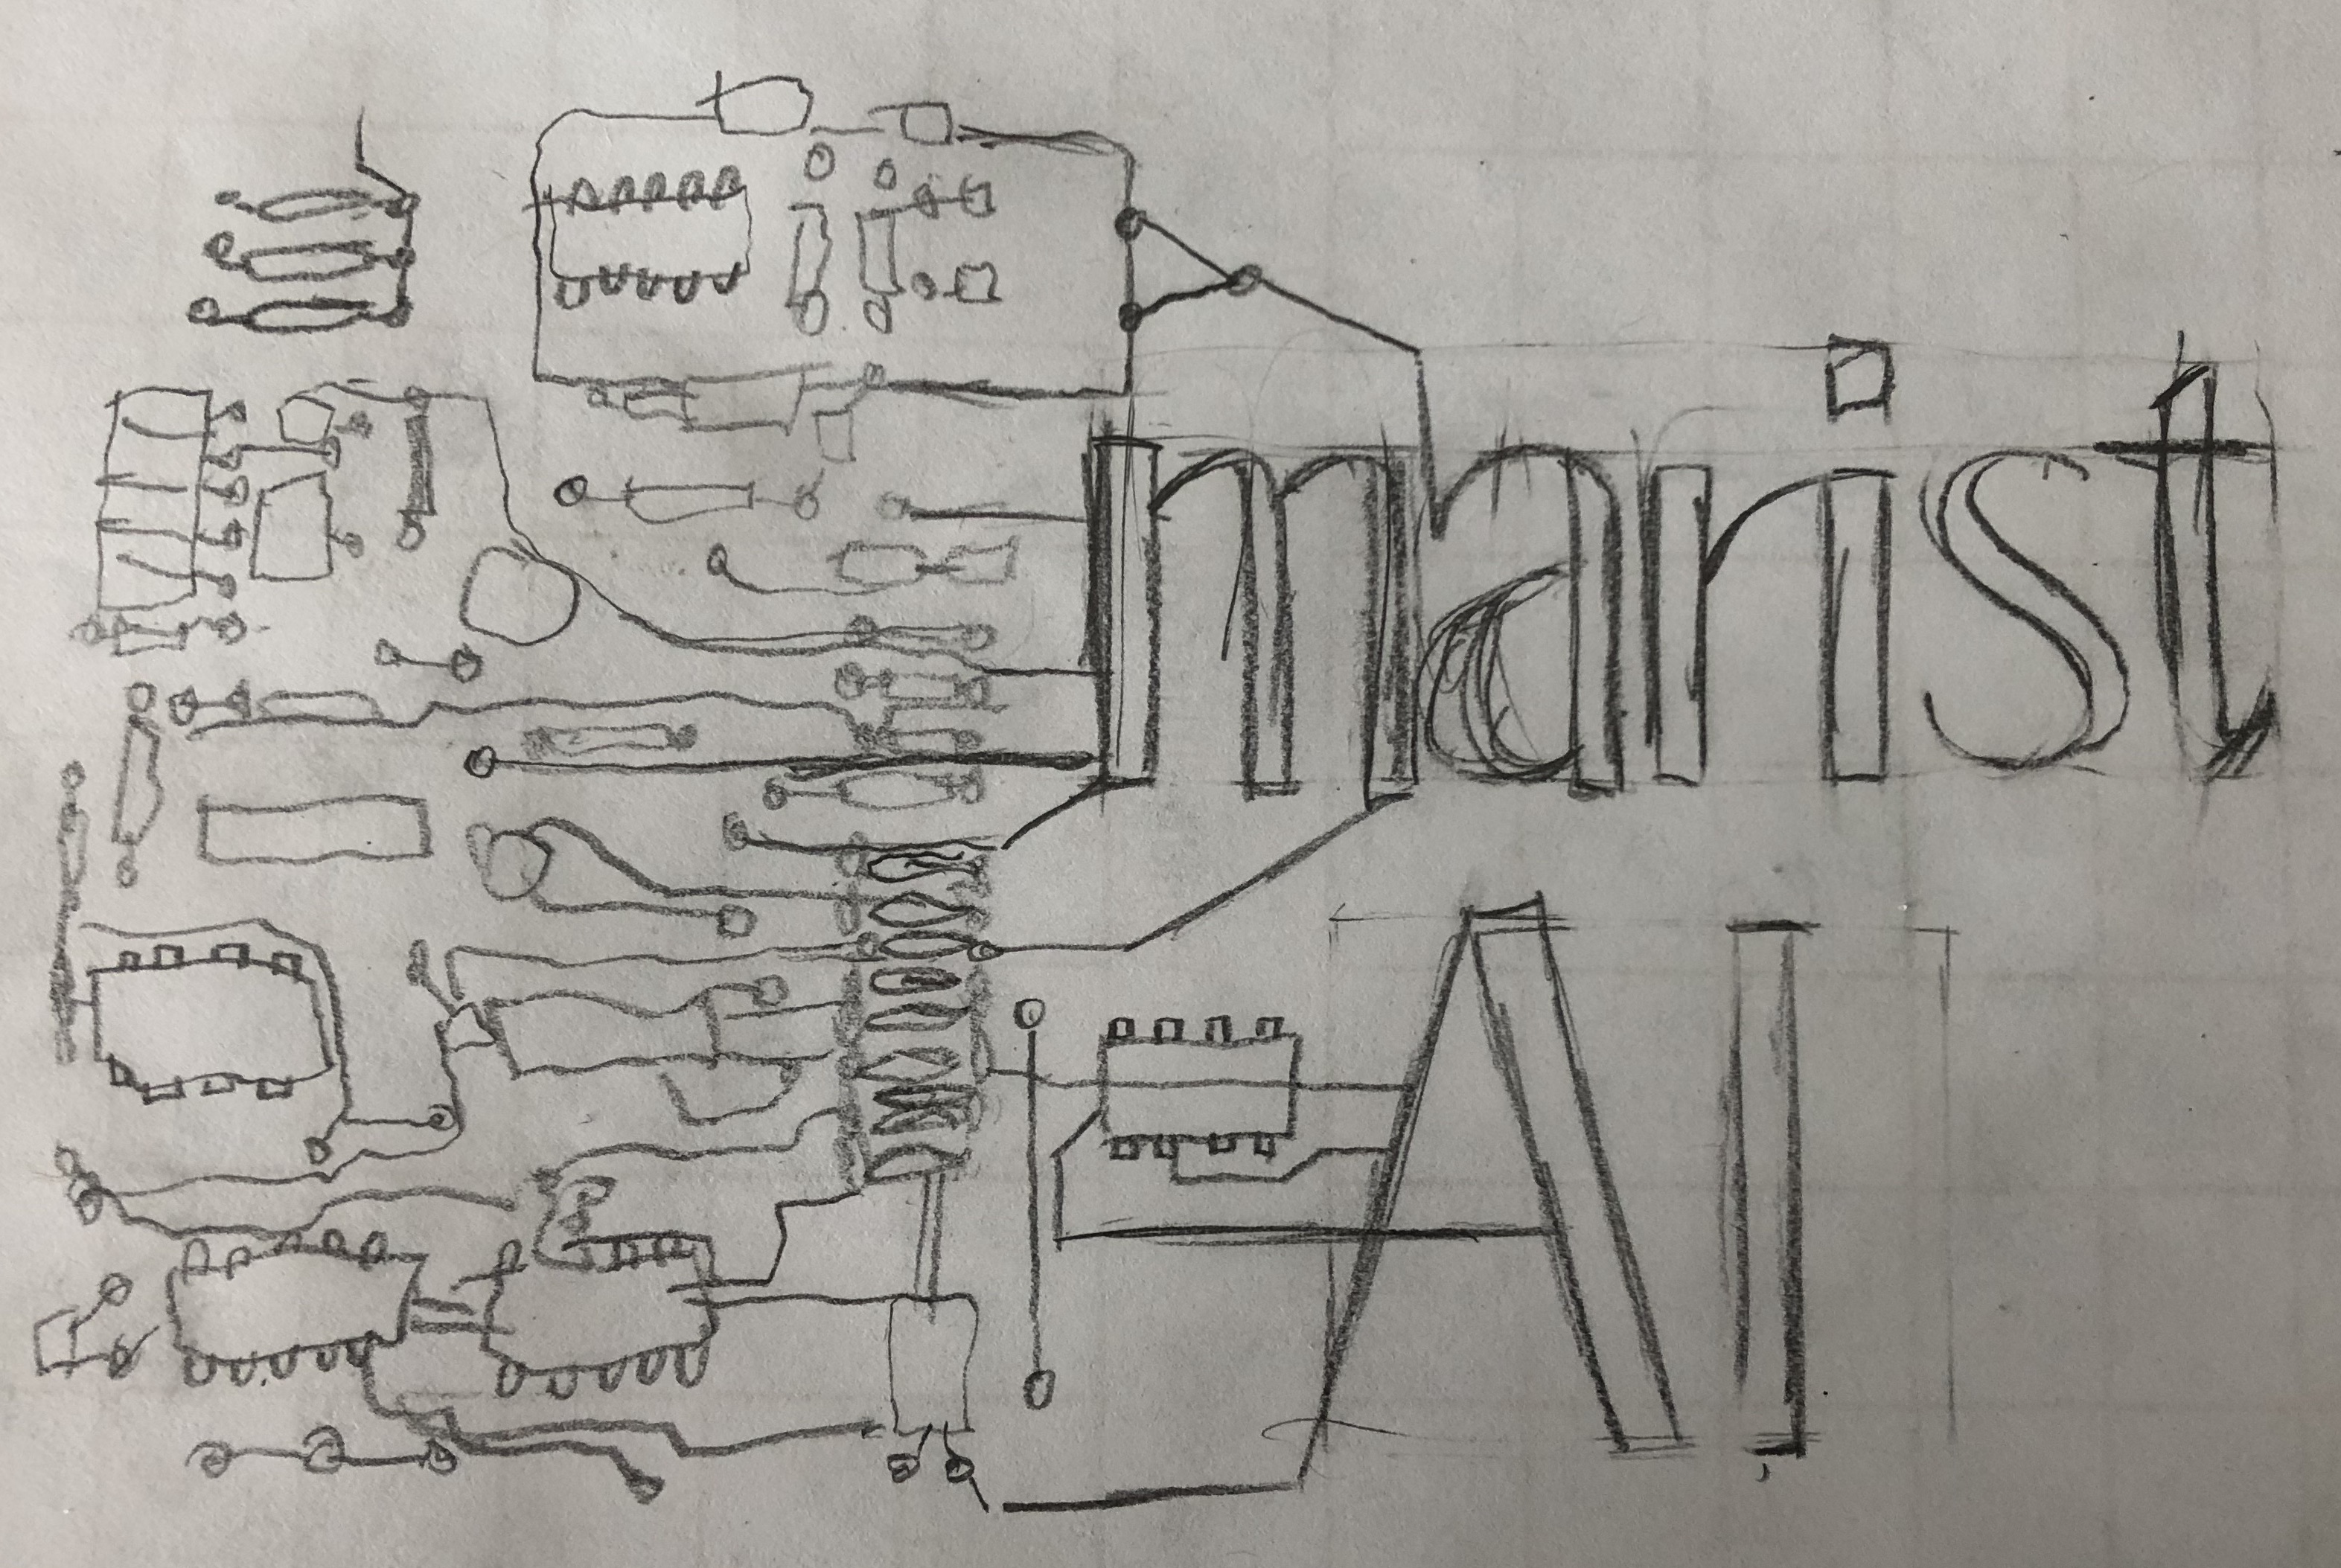 marist
AI